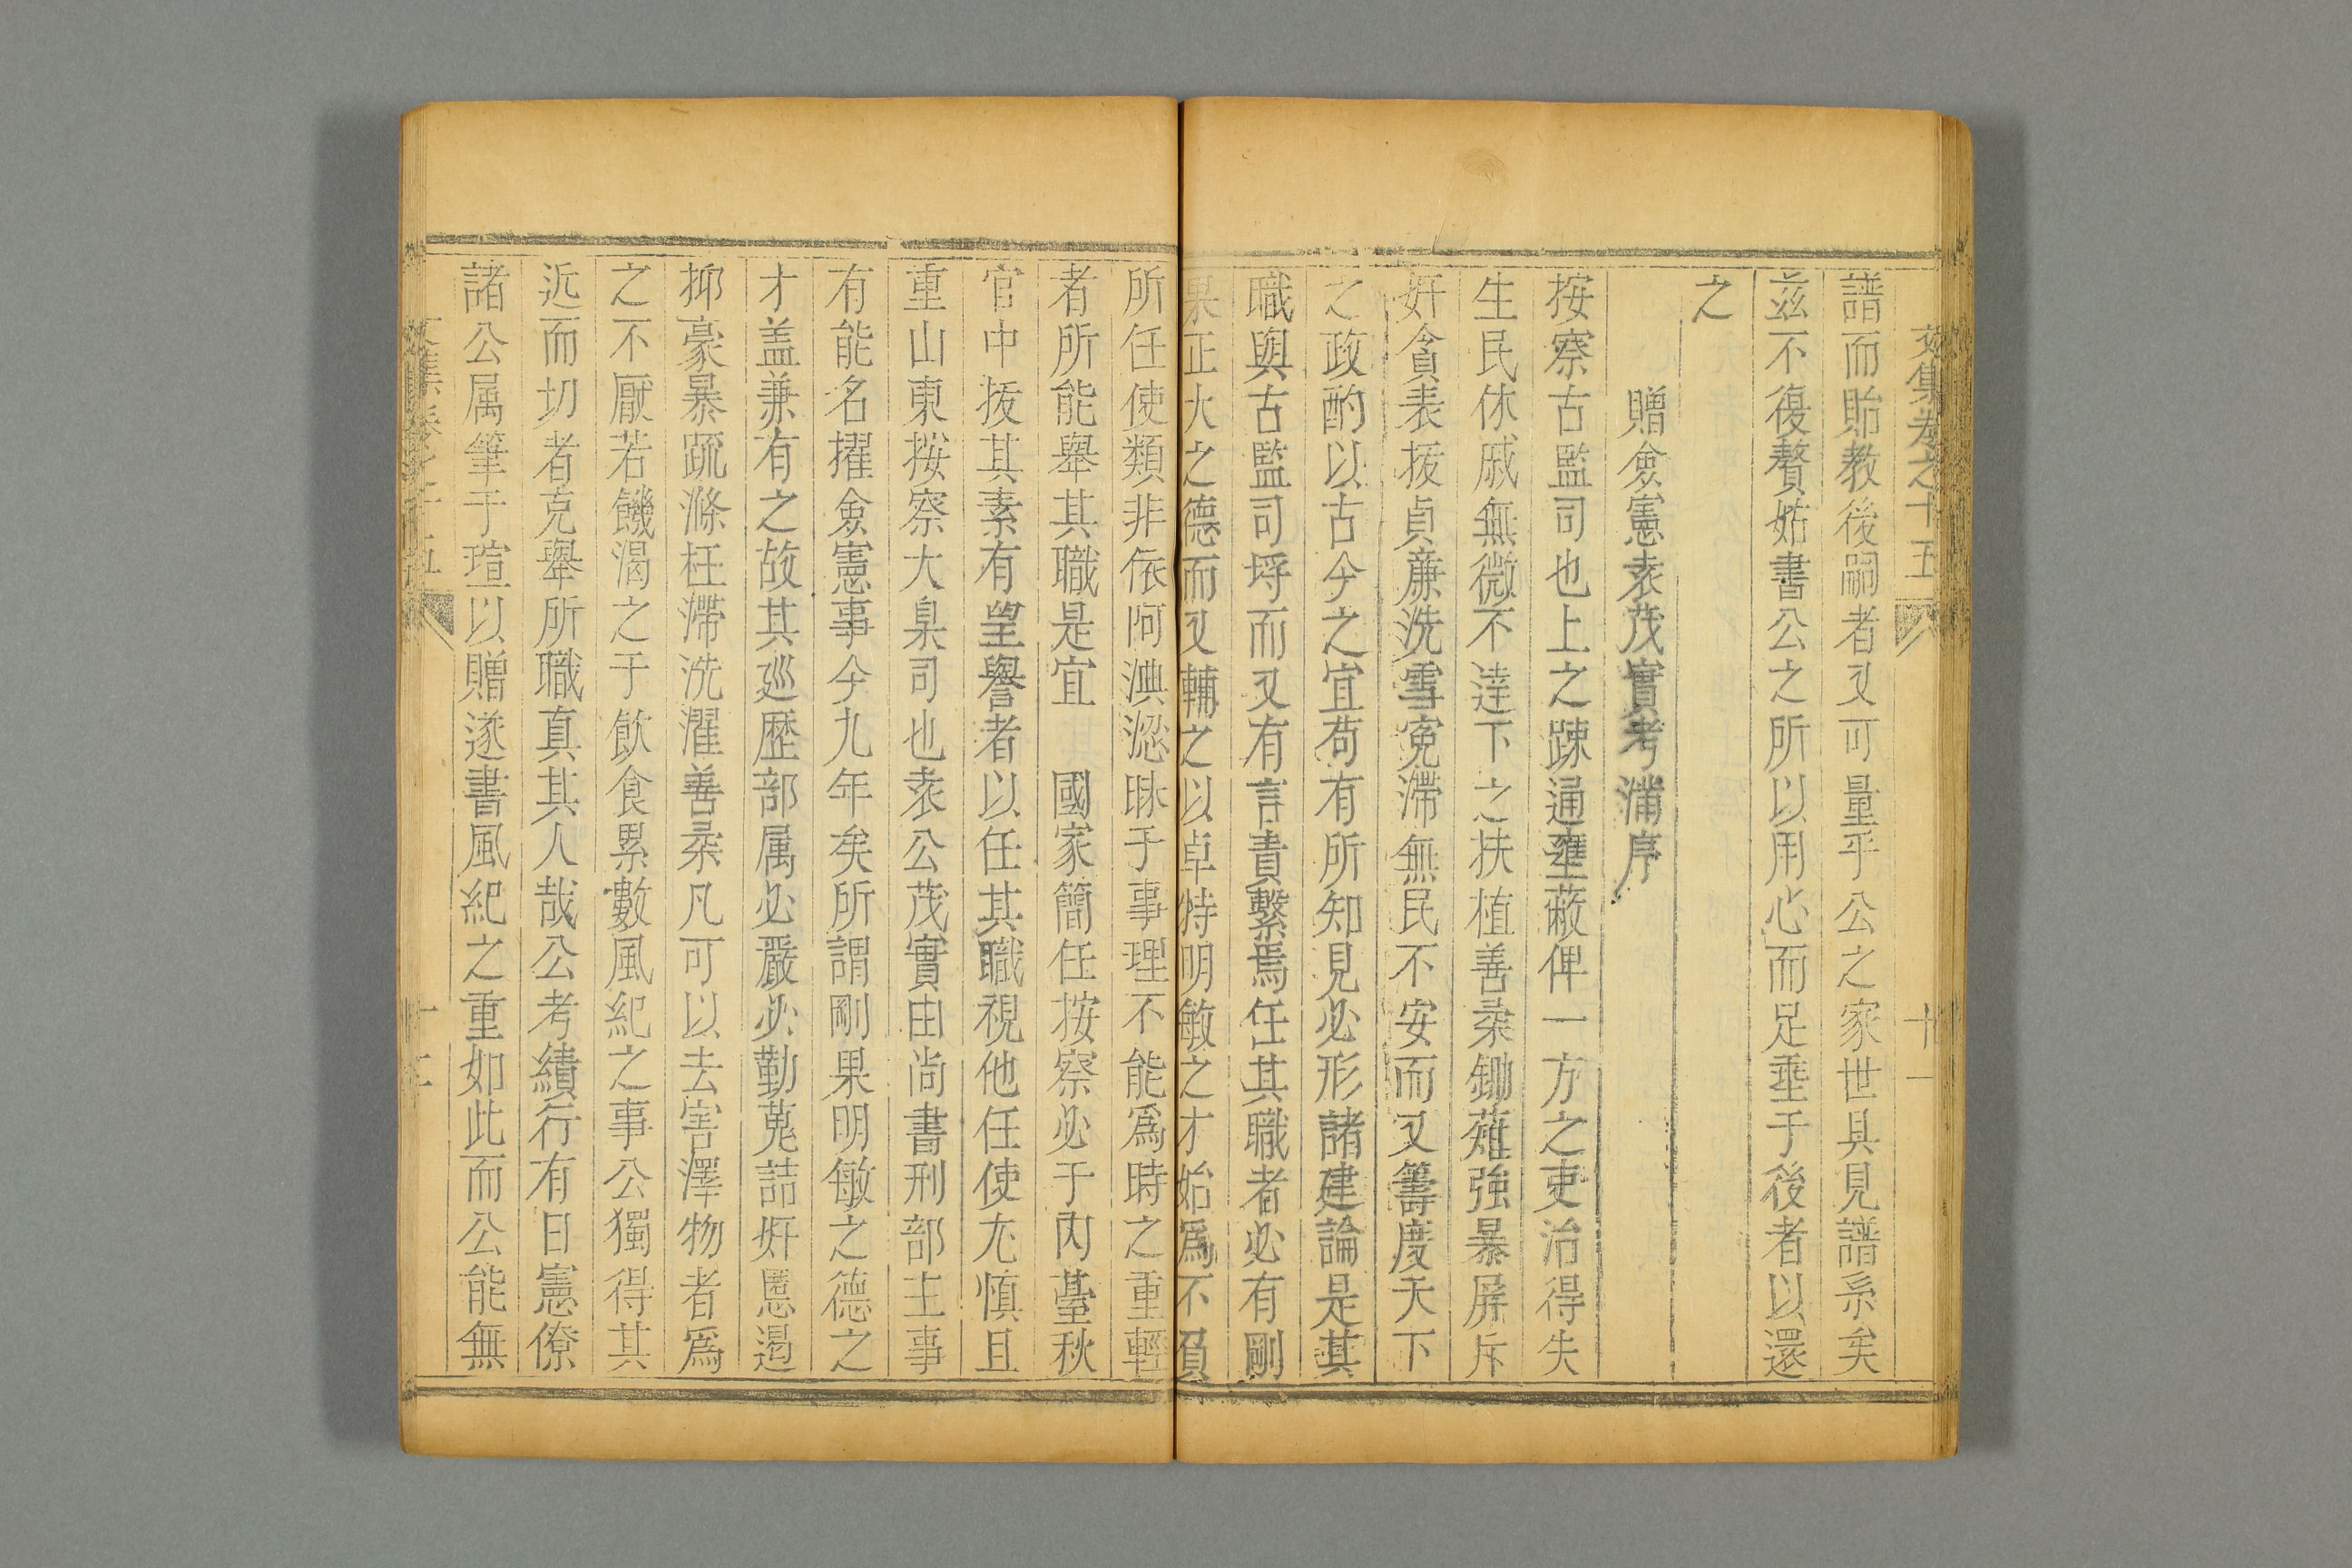 文集卷之十五
十一
譜而貽教後嗣者又可量乎公之家世具見譜系矣
茲不復贅姑書公之所以用心而足垂于後者以還
之
贈僉憲袁茂實考滿序
按察古監司也上之踈通壅蔽俾一方之吏治得失
生民休戚無微不達下之扶植善柔鋤薙強暴屏斥
奸貪表拔貞廉洗雪冤滯無民不安而又籌度天下
之政酌以古今之宜苟有所知見必形諸建論是其
職與古監司埒而又有言責繫焉任其職者必有剛
果正大之德而又輔之以卓特明敏之才始爲不負
所任使類非依阿淟涊昧于事理不能爲時之重輕
者所能舉其職是宜　國家簡任按察必于內臺秋
官中拔其素有望譽者以任其職視他任使尤慎且
重山東按察大臬司也袁公茂實由尚書刑部主事
有能名擢僉憲事今九年矣所謂剛果明敏之德之
才盖兼有之故其廵歷部属必嚴必勤蒐詰奸慝遏
抑豪暴疏滌枉滯洗濯善柔凡可以去害澤物者爲
之不厭若饑渴之于飲食累數風紀之事公獨得其
近而切者克舉所職真其人哉公考績行有日憲僚
諸公属筆于瑄以贈遂書風紀之重如此而公能無
文集卷之十五
十二